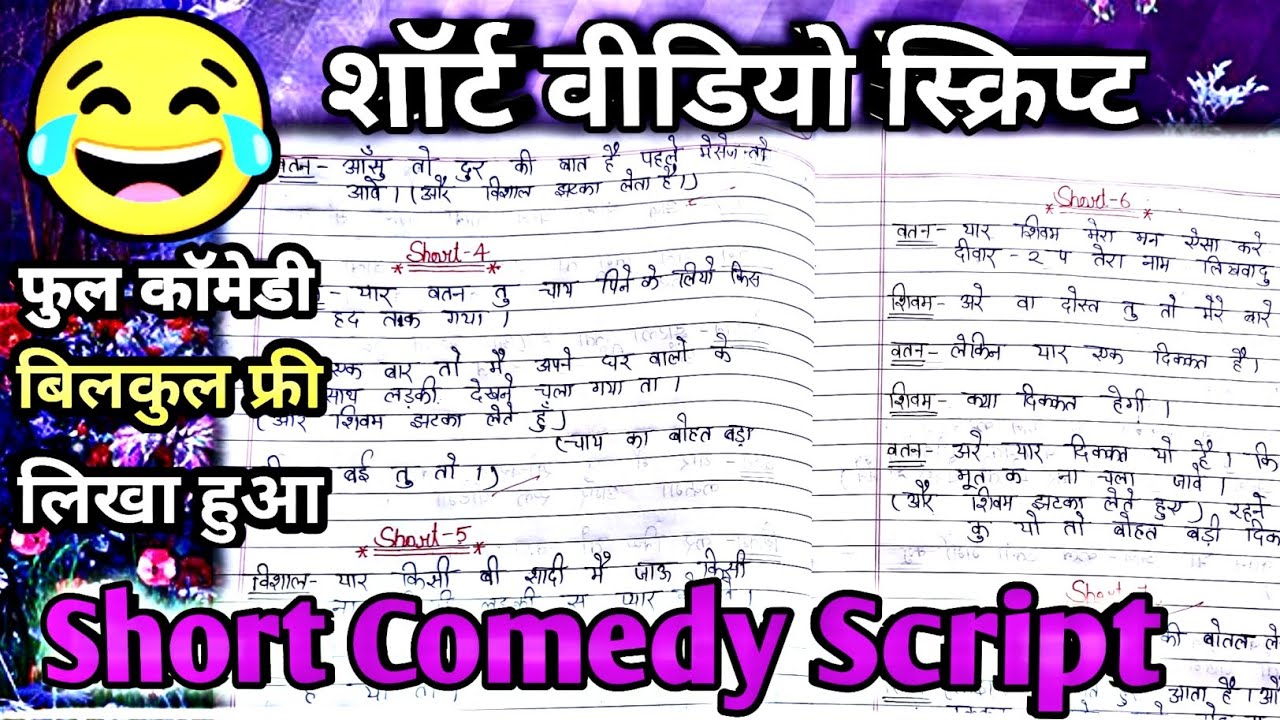 शॉर्ट वीडियो स्क्रिप्ट
फुल कॉमेडी
बिलकुल फ्री
लिखा हुआ
वतन - आँसु तो दुर की बात है पहले मेसेज तो
आवे । (और विशाल झटका लेता है।)
* Short-4 *
- यार वतन तु चाय पिने के लियो किस
हद तक गया ।
एक बार तो मै अपने घर वालो के
साथ लड़की देखने चला गया ता ।
(और शिवम झटका लेते हुए)
(चाय का बोहत बड़ा
बई तु तो ।)
* Short-5 *
विशाल - यार किसी बी शादी मैं जाऊ किसी
ना लड़की स प्यार
* Short-6 *
वतन - यार शिवम मेरा मन ऐसा करे
दीवार - २ प तेरा नाम लिखवादु
शिवम - अरे वा दोस्त तु तो मेरे बारे
वतन - लेकिन यार एक दिक्कत है।
शिवम - क्या दिक्कत हेगी ।
वतन - अरे यार दिक्कत यो है । कि
मूत क ना चला जावे ।
(और शिवम झटका लेते हुए) रहने
कु यो तो बोहत बड़ी दिक
Short
की बोतल ले
आता है । औ
Short Comedy Script